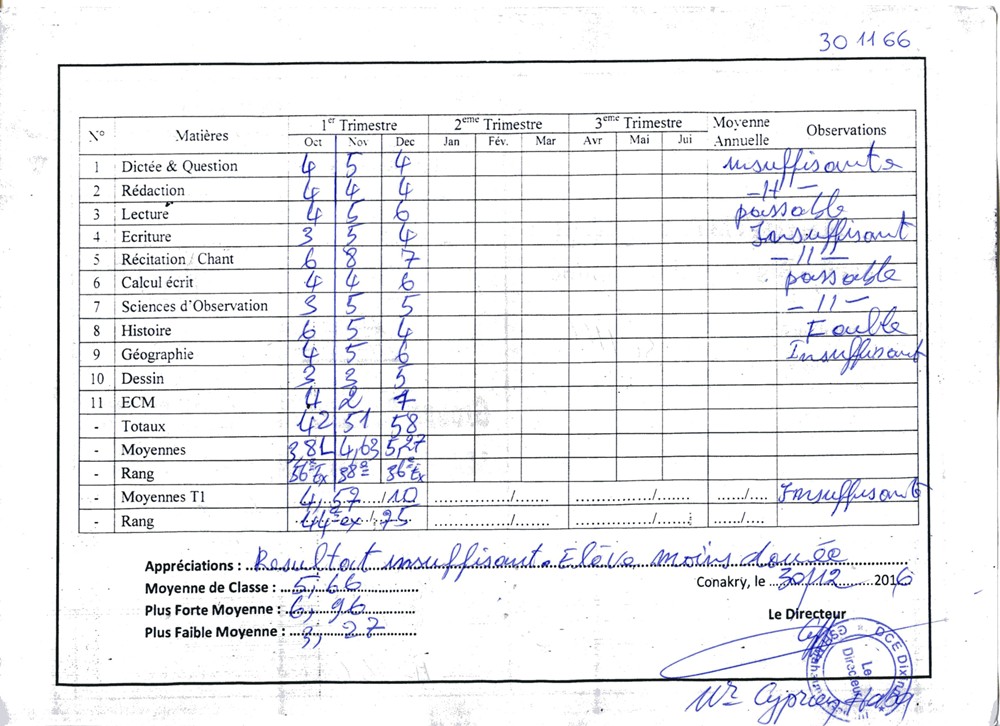 30 11 66
N° Matières 1er Trimestre 2eme Trimestre 3eme Trimestre Moyenne Annuelle Observations
Oct Nov Dec Jan Fév. Mar Avr Mai Jui
1 Dictée & Question 4 5 4 insuffisante
2 Rédaction 4 4 4 -11-
3 Lecture 4 5 6 passable
4 Ecriture 3 5 4 Insuffisant
5 Récitation / Chant 6 8 7 -11-
6 Calcul écrit 4 4 6 passable
7 Sciences d'Observation 3 5 5 -11-
8 Histoire 6 5 4 Faible
9 Géographie 4 5 6 Insuffisant
10 Dessin 3 3 5
11 ECM 4 2 7
- Totaux 42 51 58
- Moyennes 3,81 4,63 5,27
- Rang 36e ex 38e 36e ex
- Moyennes T1 4,57 /10 ............/..... ............/..... ....../.... Insuffisante
- Rang 44e ex / 75 ............/..... ............/..... ....../....
Appréciations : Resultat insuffisant. Elève moins douée
Moyenne de Classe : 5,66 Conakry, le 30/12 2016
Plus Forte Moyenne : 6,96
Plus Faible Moyenne : 3,27
Le Directeur
DCE Dixinn
Le Directeur
Mr Cyprien